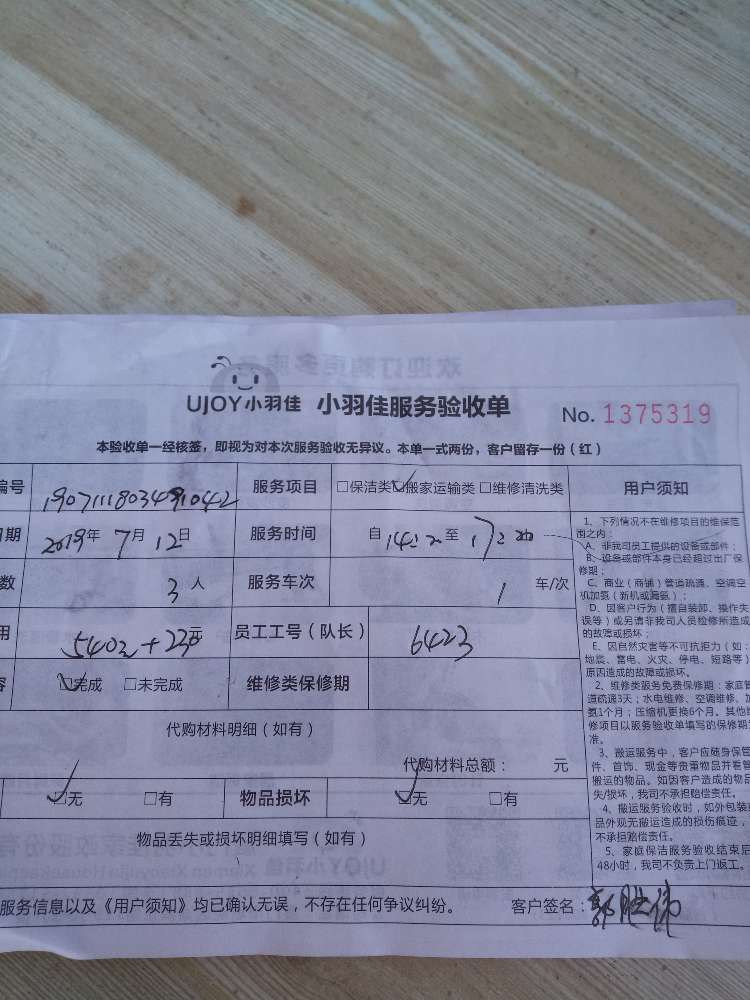 UJOY小羽佳 小羽佳服务验收单 No. 1375319
本验收单一经核签，即视为对本次服务验收无异议。本单一式两份，客户留存一份（红）
编号 1907111803491042 服务项目 □保洁类 ☑搬家运输类 □维修清洗类 用户须知
日期 2019年 7月 12日 服务时间 自 至
数 3 人 服务车次 1 车/次
用 540元+23元 员工工号（队长） 6423
容 ☑完成 □未完成 维修类保修期
代购材料明细（如有）
代购材料总额： 元
☑无 □有 物品损坏 ☑无 □有
物品丢失或损坏明细填写（如有）
服务信息以及《用户须知》均已确认无误，不存在任何争议纠纷。 客户签名：郭胜伟
1、下列情况不在维修项目的维保范
围之内：
A、非我司员工提供的设备或部件；
B、设备或部件本身已经超过出厂保
修期；
C、商业（商铺）管道疏通、空调空
机加氨（新机或漏氨）；
D、因客户行为（擅自装卸、操作失
误等）或另请非我司人员检修所造成
的故障或损坏；
E、因自然灾害等不可抗拒力（如：
地震、雷电、火灾、停电、短路等）
原因造成的故障或损坏。
2、维修类服务免费保修期：家庭管
道疏通3天；水电维修、空调维修、加
氨1个月；压缩机更换6个月。其他维
修项目以服务验收单填写的保修期为
准。
3、搬运服务中，客户应随身保管
件、首饰、现金等贵重物品并看管
搬运的物品。如因客户造成的物品
失/损坏，我司不承担赔偿责任。
4、搬运服务验收时，如外包装或
品外观无搬运造成的损伤痕迹，
不承担赔偿责任。
5、家庭保洁服务验收结束后
48小时，我司不负责上门返工。